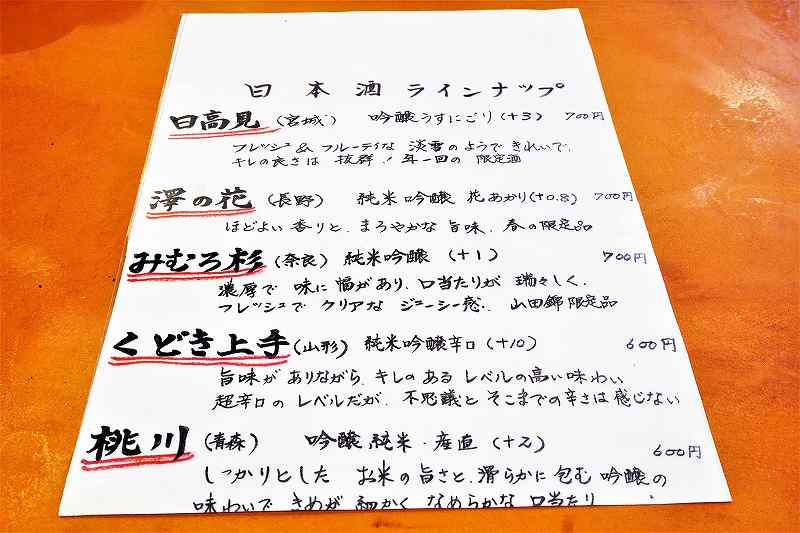 日本酒ラインナップ
日高見 (宮城) 吟醸うすにごり (+3) 700円
フレッシュ & フルーティな 淡雪のようで きれいで、
キレの良さは 抜群！年一回の 限定酒
澤の花 (長野) 純米吟醸 花あかり(+0.8) 700円
ほどよい香りと、まろやかな旨味、春の限定品
みむろ杉 (奈良) 純米吟醸 (+1) 700円
濃厚で 味に幅があり、口当たりが 瑞々しく、
フレッシュで クリアな ジューシー感、山田錦限定品
くどき上手 (山形) 純米吟醸辛口 (+10) 600円
旨味がありながら、キレのある レベルの高い味わい
超辛口のレベルだが、不思議と そこまでの辛さは感じない
桃川 (青森) 吟醸純米・産直 (+2) 600円
しっかりとした お米の旨さと、滑らかに包む 吟醸の
味わいで きめが 細かく なめらかな 口当たり